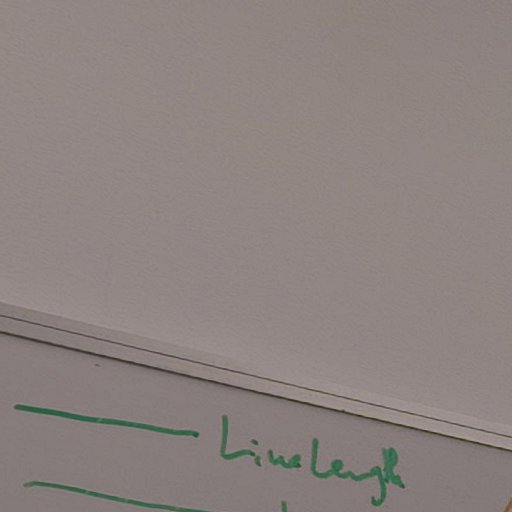 Line Length